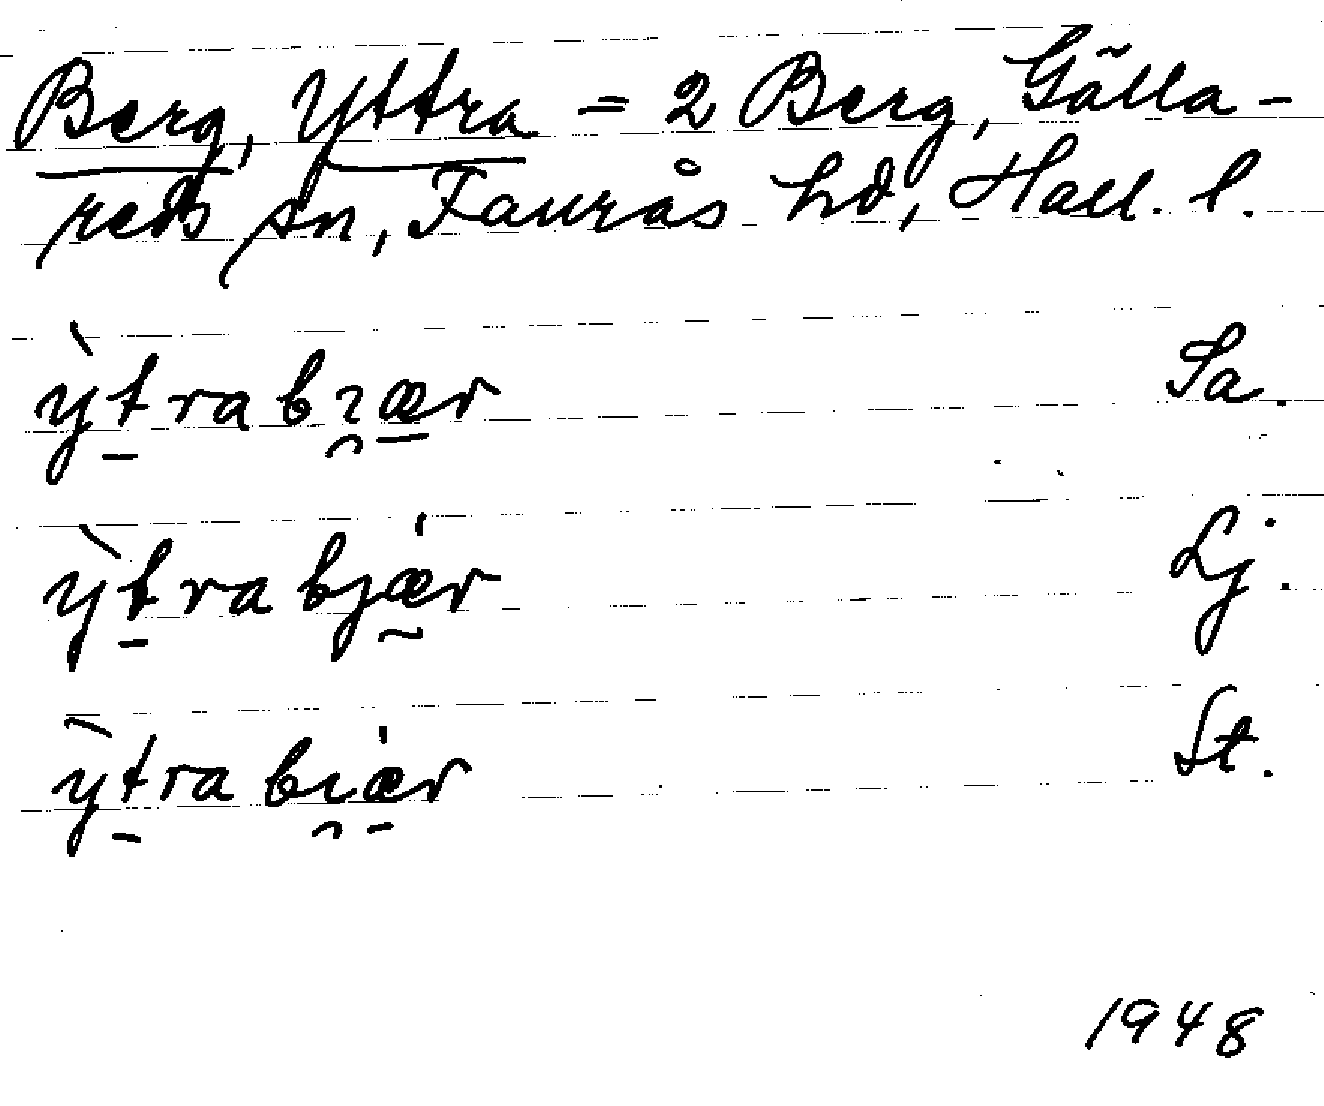 Berg, Yttra = 2 Berg, Gälla-
reds sn, Faurås hd, Hall. l.
ỳt̠rabɿ̯æ̠r Sa.
ỳt̠rabjæ̰̍r Lj.
ỳt̠rabı̯æ̠̍r St.
1948